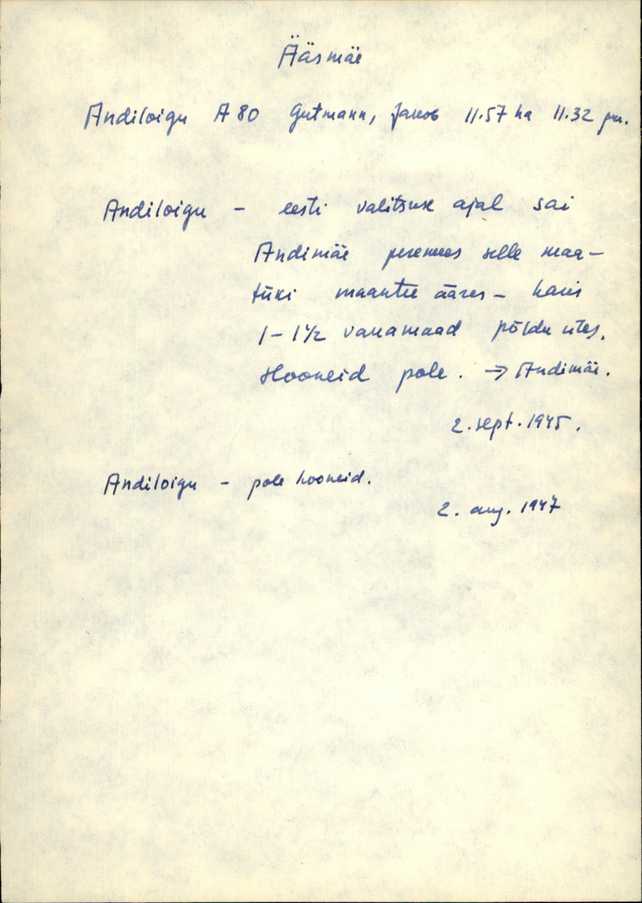 Ääsmäe
Andiloigu A 80 Gutmann, Jakob 11.57 ha 11.32 pm.
Andiloigu – eesti valitsuse ajal sai
Andimäe peremees selle maa-
tüki maantee ääres –
1 – 1½ vakamaad põldu
Hooneid pole. → Andimäe.
2. sept. 1945.
Andiloigu – pole hooneid.
2. aug. 1947